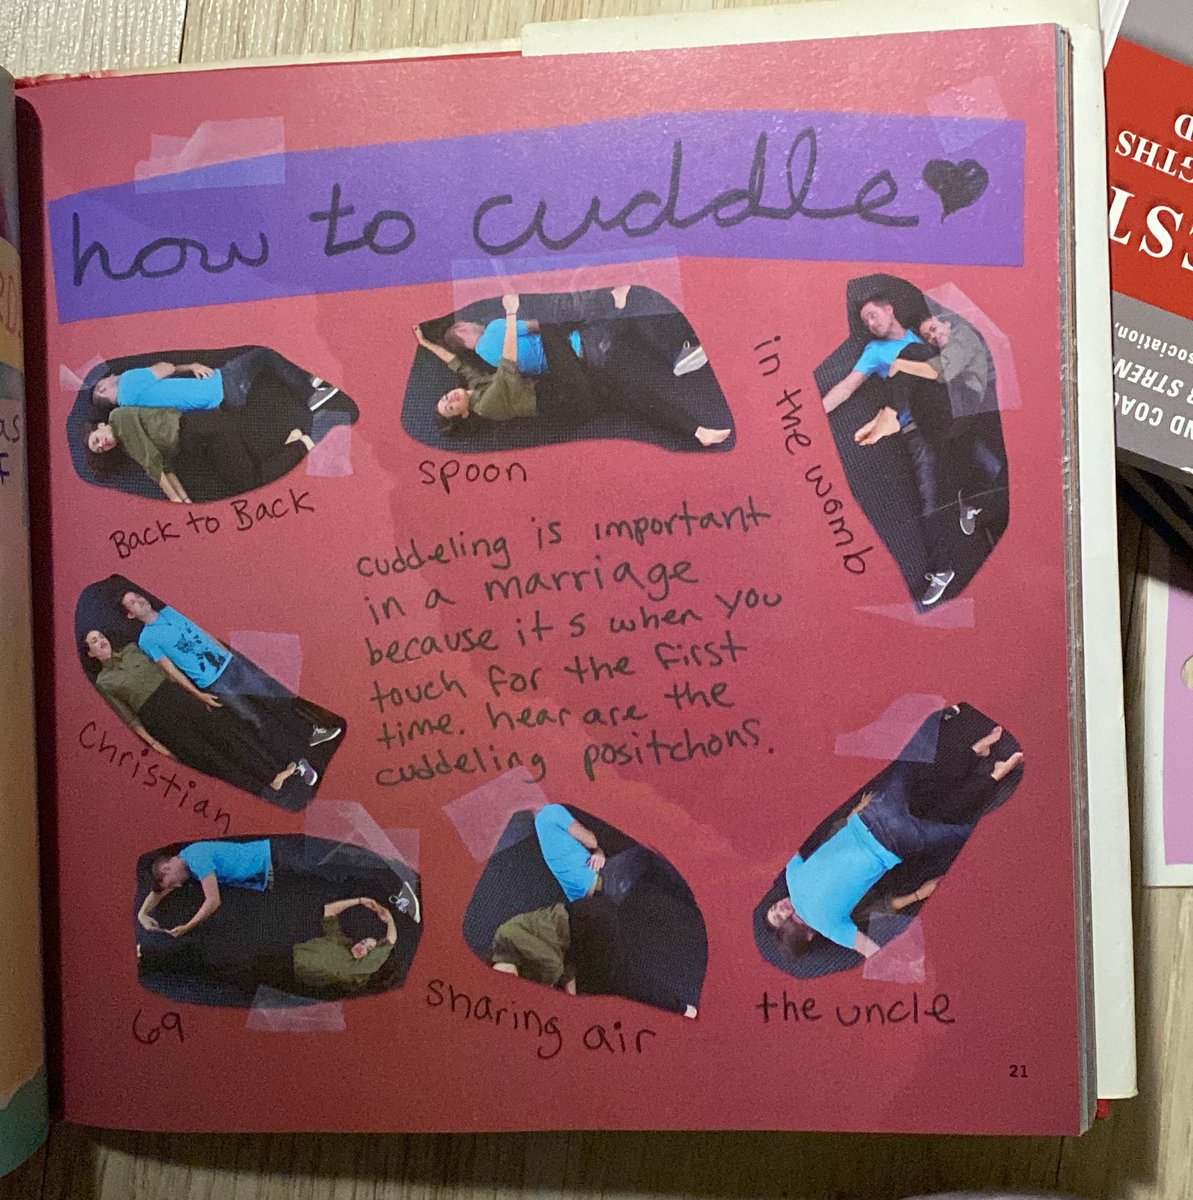 how to cuddle
Back to Back
spoon
in the womb
cuddeling is important
in a marriage
because it s when you
touch for the first
time. hear are the
cuddeling positchons.
Christian
69
sharing air
the uncle
21
GTHS
EST
ssociation,
R STREN
ND COAC
as